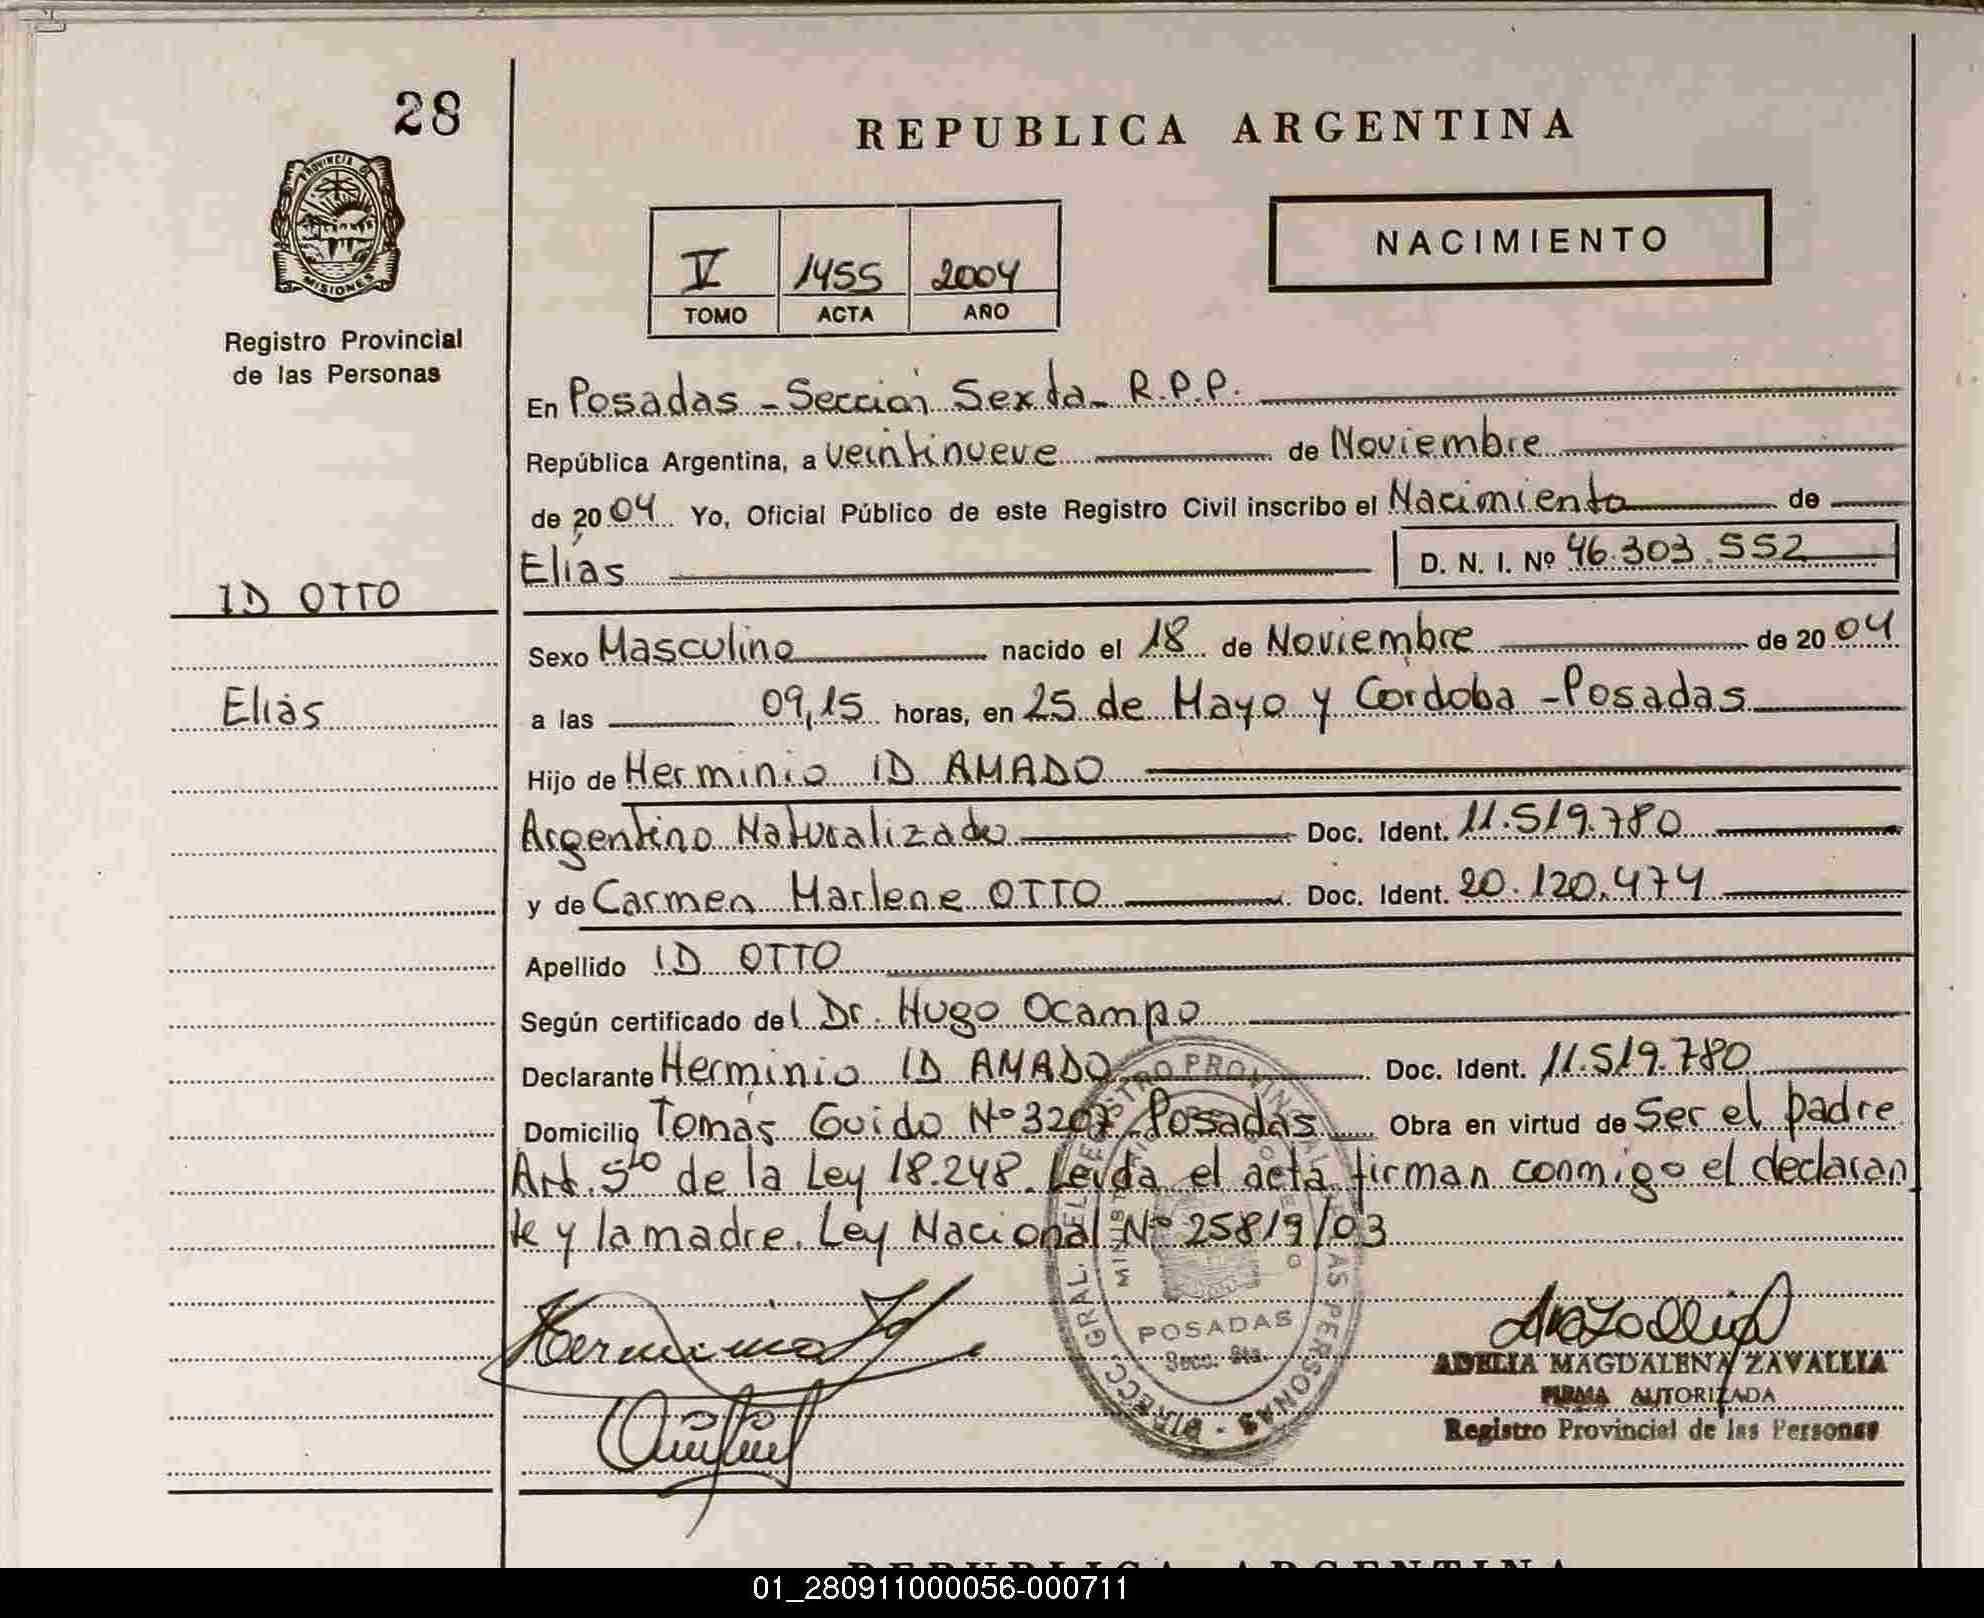 28
REPUBLICA ARGENTINA
PROVINCIA DE
MISIONES
Registro Provincial
de las Personas
NACIMIENTO
V 1455 2004
TOMO ACTA AÑO
En Posadas - Sección Sexta - R.P.P.
República Argentina, a veintinueve de Noviembre
de 2004 Yo, Oficial Público de este Registro Civil inscribo el Nacimiento de
Elías D. N. I. Nº 46.303.552
ID OTTO
Sexo Masculino nacido el 18 de Noviembre de 2004
Elías
a las 09,15 horas, en 25 de Mayo y Córdoba - Posadas
Hijo de Herminio ID AMADO
Argentino Naturalizado Doc. Ident. 11.519.780
y de Carmen Marlene OTTO Doc. Ident. 20.120.474
Apellido ID OTTO
Según certificado del Dr. Hugo Ocampo
Declarante Herminio ID AMADO Doc. Ident. 11.519.780
Domicilio Tomás Guido Nº 3207 - Posadas Obra en virtud de Ser el padre
Art. 5to de la Ley 18.248. Leída el acta firman conmigo el declaran
te y la madre. Ley Nacional Nº 25819/03
Herminio Id
POSADAS
Secc. 6ta.
ADELIA MAGDALENA ZAVALLIA
FIRMA AUTORIZADA
Registro Provincial de las Personas
REPUBLICA ARGENTINA
01_280911000056-000711